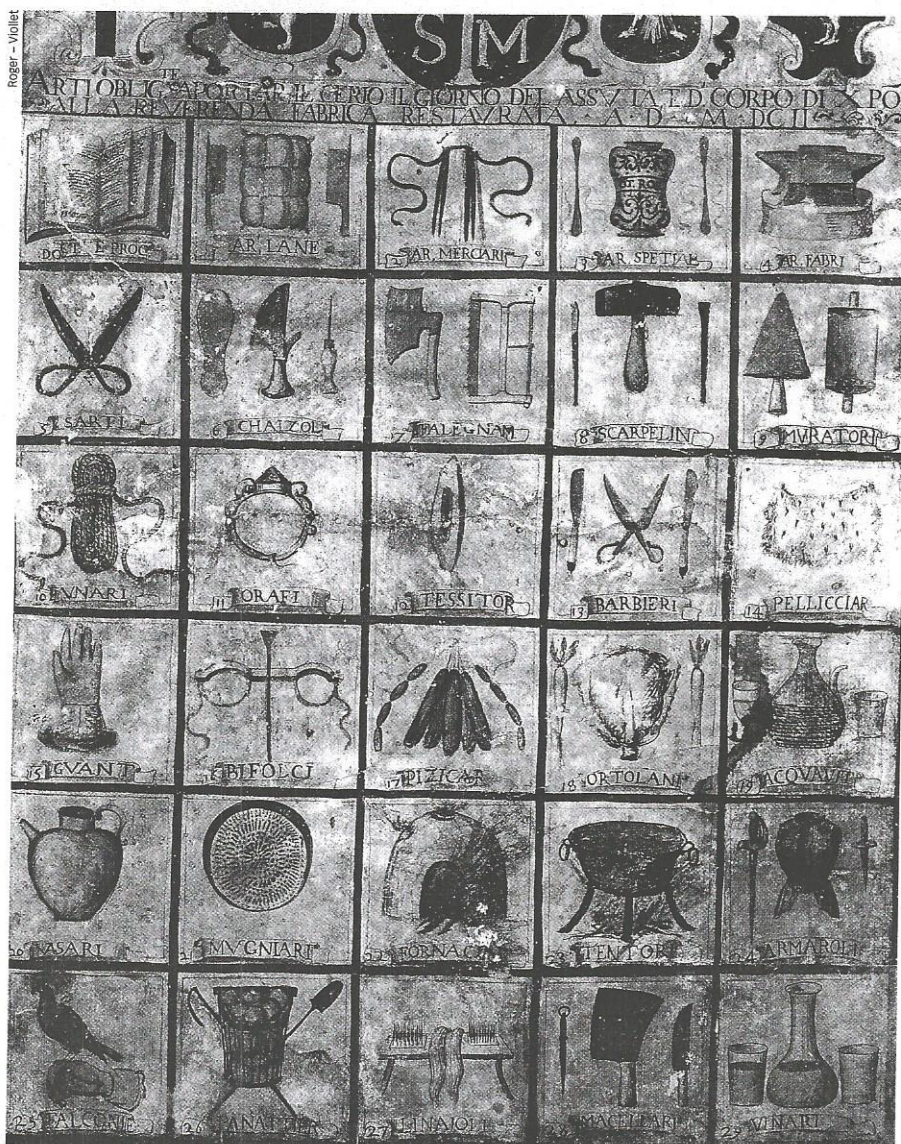 Roger – Viollet
S M
ARTI OBLIG.TE A PORTAR IL CERIO IL GIORNO DEL ASSVTA, E D. CORPO DI XPO
ALLA REVERENDA FABRICA RESTAVRATA. A. D. M. DCII
DOT. E PROC
1 AR LANE
2 AR. MERCIARI
3 AR SPETIAL
4 AR. FABRI
5 SARTI
6 CHALZOL
7 FALEGNAM
8 SCARPELIN
9 MVRATORI
10 FVNARI
11 ORAFI
12 TESSITOR
13 BARBIERI
14 PELLICCIAR
15 GVANT
16 BIFOLCI
17 PIZICAR
18 ORTOLANI
19 ACQVAVIT
20 VASARI
21 MVGNIARI
22 FORNACI
23 TENTORI
24 ARMAROLI
25
26
27 LINAIOLI
28 MACELLARI
29 VINARI